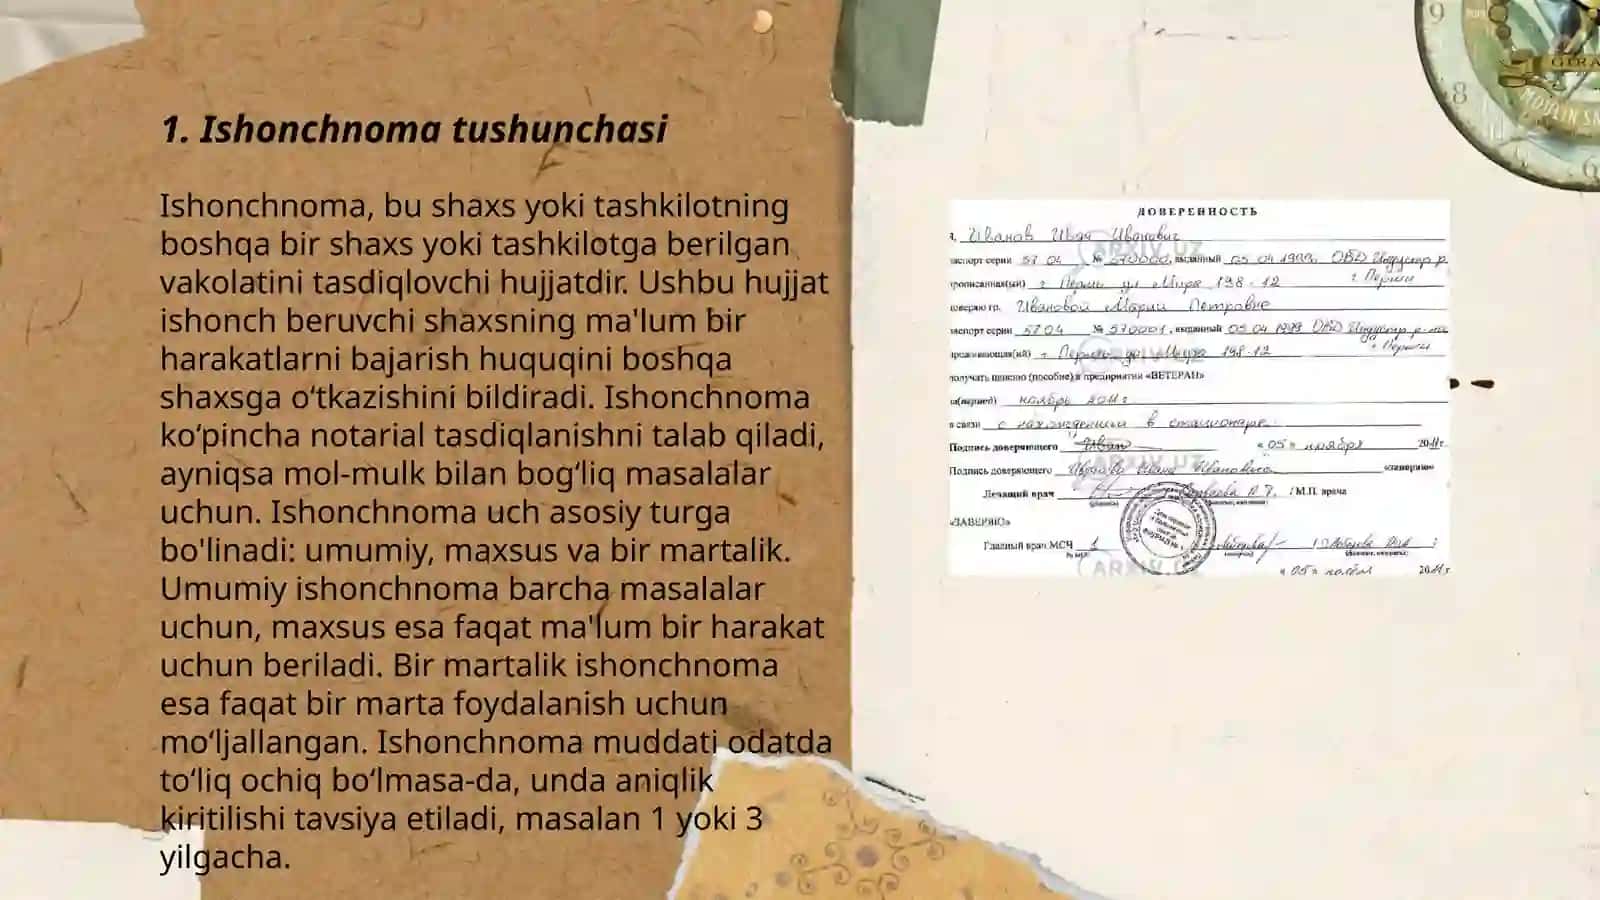 1. Ishonchnoma tushunchasi
Ishonchnoma, bu shaxs yoki tashkilotning
boshqa bir shaxs yoki tashkilotga berilgan
vakolatini tasdiqlovchi hujjatdir. Ushbu hujjat
ishonch beruvchi shaxsning ma'lum bir
harakatlarni bajarish huquqini boshqa
shaxsga o‘tkazishini bildiradi. Ishonchnoma
ko‘pincha notarial tasdiqlanishni talab qiladi,
ayniqsa mol-mulk bilan bog‘liq masalalar
uchun. Ishonchnoma uch asosiy turga
bo'linadi: umumiy, maxsus va bir martalik.
Umumiy ishonchnoma barcha masalalar
uchun, maxsus esa faqat ma'lum bir harakat
uchun beriladi. Bir martalik ishonchnoma
esa faqat bir marta foydalanish uchun
mo‘ljallangan. Ishonchnoma muddati odatda
to‘liq ochiq bo‘lmasa-da, unda aniqlik
kiritilishi tavsiya etiladi, masalan 1 yoki 3
yilgacha.
ДОВЕРЕННОСТЬ
Иванов Иван Иванович
серии 57 04 № 570000, выданный 05 04 1999, ОВД Индустр. р.
г. Перми
г. Пермь ул. Мира 198-12
гр. Ивановой Марии Петровне
серии 57 04 № 570001, выданный 05 04 1999 ОВД Индустр. р-на
г. Перми
г. Пермь ул. Мира 198-12
получать пенсию (пособие) в предприятии «ВЕТЕРАН»
ноябрь 2011 г
в связи с нахождением в стационаре
Подпись доверяющего Иван «05» ноября 2011г.
Подпись доверяющего Иванова Ивана Ивановича «заверяю»
Лечащий врач / М.П. врача
«ЗАВЕРЯЮ»
Главный врач МСЧ 1
«05» 2011г.
ARXIV.UZ
9
8
6
MOULIN